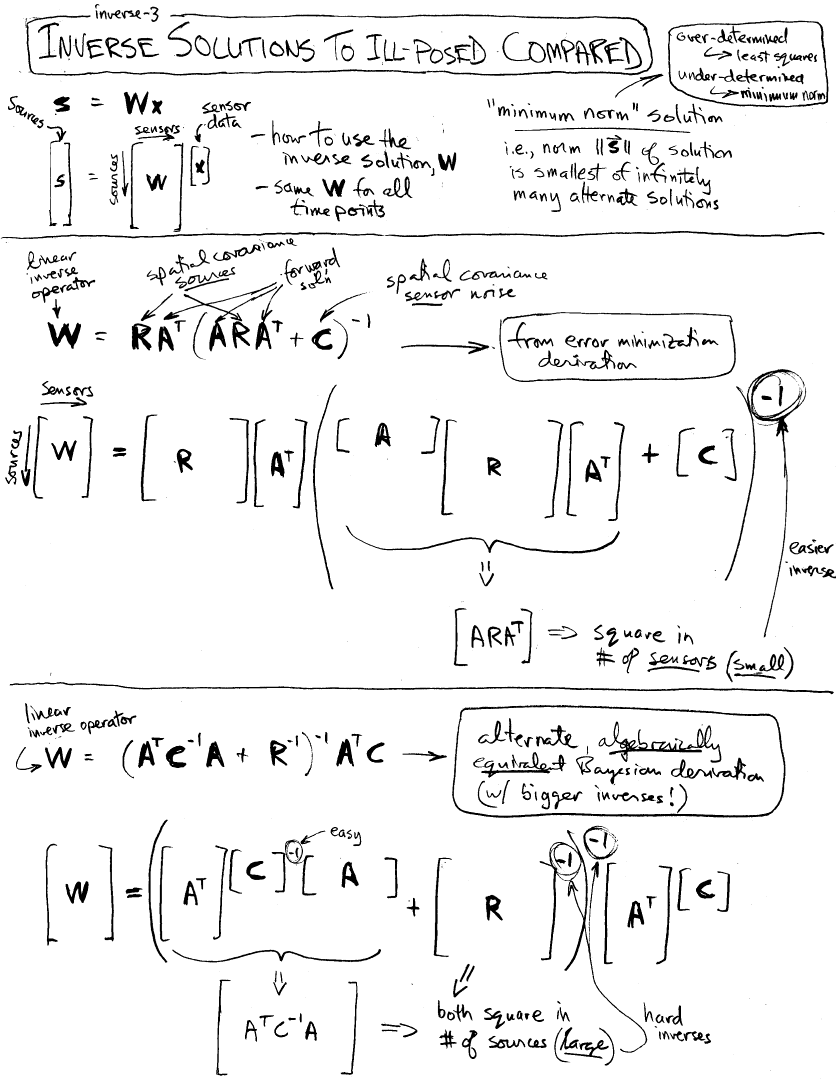 inverse-3
INVERSE SOLUTIONS TO ILL-POSED COMPARED
over-determined
↳ least squares
under-determined
↳ minimum norm
s = Wx
sources
sensors
sensor
data
[s] = sources [W] [x]
- how to use the
inverse solution, W
- same W for all
timepoints
"minimum norm" solution
i.e., norm ||s⃗|| of solution
is smallest of infinitely
many alternate solutions
linear
inverse
operator
spatial covariance
sources
forward
sol'n
spatial covariance
sensor noise
W = RAᵀ(ARAᵀ + C)⁻¹
from error minimization
derivation
sensors
sources [W] = [R][Aᵀ]([A][R][Aᵀ] + [C])⁻¹
easier
inverse
[ARAᵀ] ⇒ square in
# of sensors (small)
linear
inverse operator
W = (AᵀC⁻¹A + R⁻¹)⁻¹AᵀC
alternate, algebraically
equivalent Bayesian derivation
(w/ bigger inverses!)
easy
[W] = ([Aᵀ][C]⁻¹[A] + [R]⁻¹)⁻¹[Aᵀ][C]
[AᵀC⁻¹A] ⇒ both square in
# of sources (large)
hard
inverses